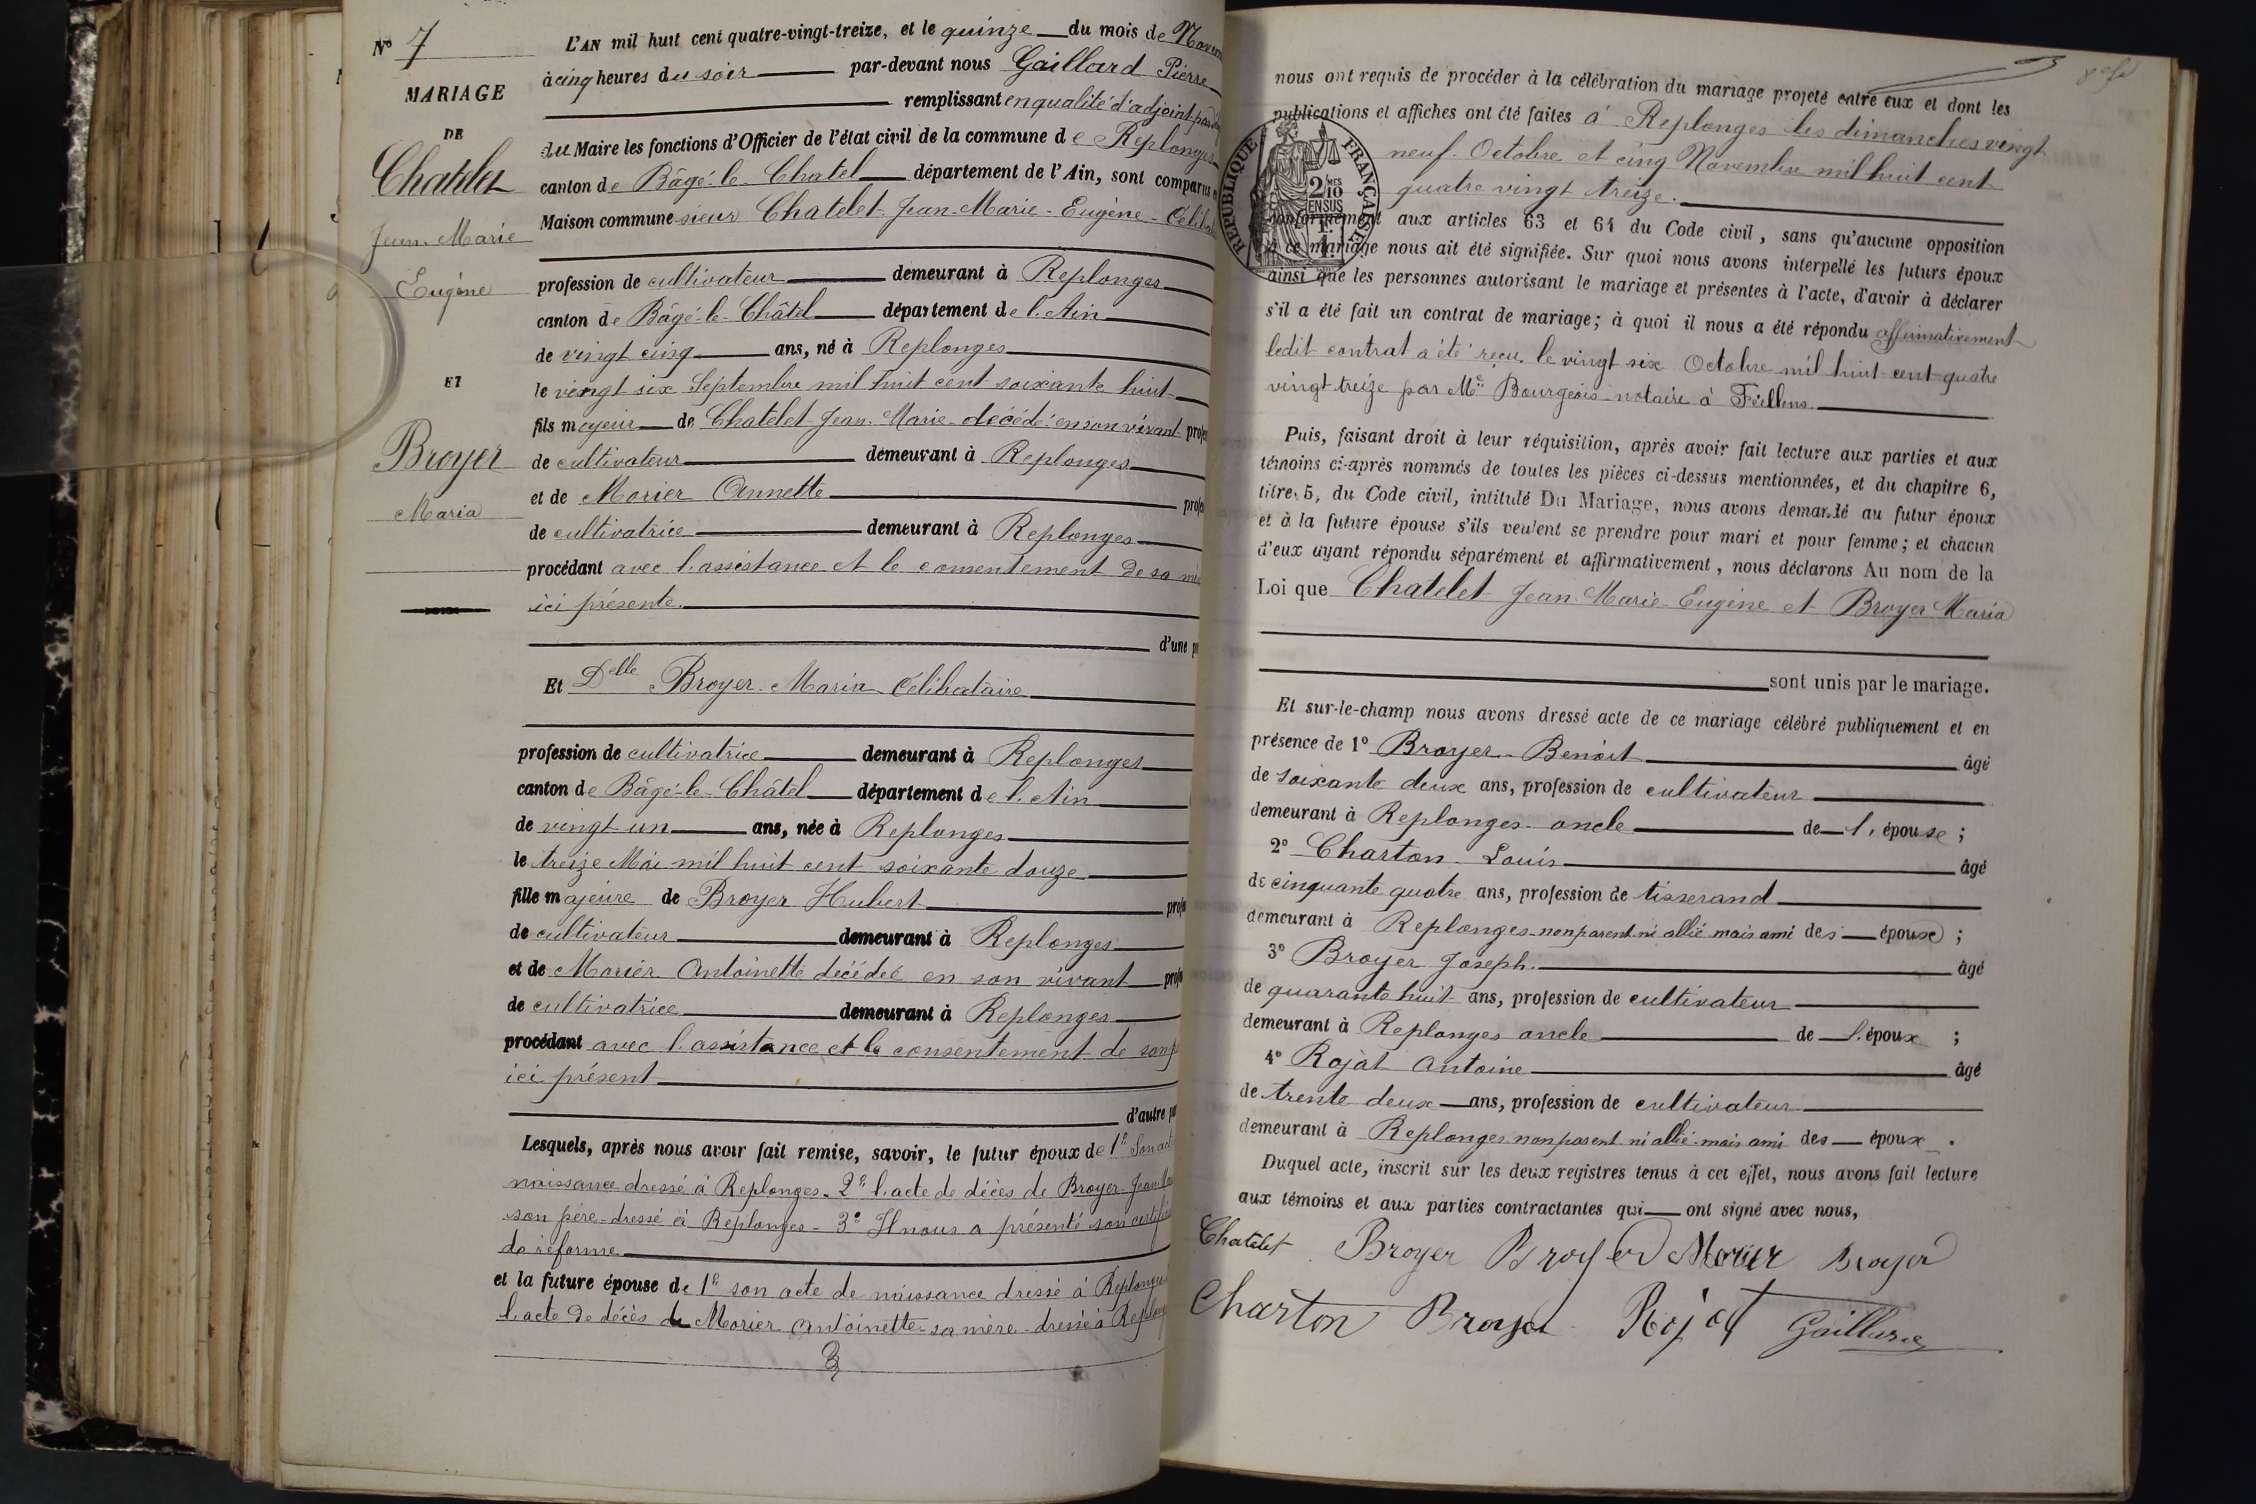 N° 7
MARIAGE
DE
Chatelet
Jean-Marie
Eugène
ET
Broyer
Maria
L'AN mil huit cent quatre-vingt-treize, et le quinze du mois de
à cinq heures du soir par-devant nous Gaillard Pierre
remplissant en qualité d'adjoint
du Maire les fonctions d'Officier de l'état civil de la commune de Replonges
canton de Bâgé-le-Chatel département de l'Ain, sont comparus
Maison commune sieur Chatelet Jean-Marie-Eugène
profession de cultivateur demeurant à Replonges
canton de Bâgé-le-Châtel département de l'Ain
de vingt cinq ans, né à Replonges
le vingt six Septembre mil huit cent soixante huit
fils majeur de Chatelet Jean-Marie décédé en son vivant
de cultivateur demeurant à Replonges
et de Morier Annette
de cultivatrice demeurant à Replonges
procédant avec l'assistance et le consentement de sa
ici présente.
d'une
Et Delle Broyer Maria Célibataire
profession de cultivatrice demeurant à Replonges
canton de Bâgé-le-Châtel département de l'Ain
de vingt un ans, née à Replonges
le treize Mai mil huit cent soixante douze
fille majeure de Broyer Hubert
de cultivateur demeurant à Replonges
et de Morier Antoinette décédée en son vivant
de cultivatrice demeurant à Replonges
procédant avec l'assistance et le consentement de son
ici présent
d'autre
Lesquels, après nous avoir fait remise, savoir, le futur époux de 1° Son
naissance dressé à Replonges. 2° l'acte de décès de Broyer
son père dressé à Replonges - 3° Il nous a présenté son
de réforme
et la future épouse de 1° son acte de naissance dressé à Replonges
l'acte de décès de Morier Antoinette sa mère dressé à
nous ont requis de procéder à la célébration du mariage projeté entre eux et dont les
publications et affiches ont été faites à Replonges les dimanches vingt
neuf Octobre et cinq Novembre mil huit cent
quatre vingt treize.
RÉPUBLIQUE FRANÇAISE
2/10 EN SUS
conformément aux articles 63 et 64 du Code civil, sans qu'aucune opposition
à ce mariage nous ait été signifiée. Sur quoi nous avons interpellé les futurs époux
ainsi que les personnes autorisant le mariage et présentes à l'acte, d'avoir à déclarer
s'il a été fait un contrat de mariage; à quoi il nous a été répondu affirmativement
ledit contrat a été reçu le vingt six Octobre mil huit cent quatre
vingt treize par Me Bourgeois notaire à Feillens.
Puis, faisant droit à leur réquisition, après avoir fait lecture aux parties et aux
témoins ci-après nommés de toutes les pièces ci-dessus mentionnées, et du chapitre 6,
titre 5, du Code civil, intitulé Du Mariage, nous avons demandé au futur époux
et à la future épouse s'ils veulent se prendre pour mari et pour femme; et chacun
d'eux ayant répondu séparément et affirmativement, nous déclarons Au nom de la
Loi que Chatelet Jean-Marie Eugène et Broyer Maria
sont unis par le mariage.
Et sur-le-champ nous avons dressé acte de ce mariage célébré publiquement et en
présence de 1° Broyer Benoit âgé
de soixante deux ans, profession de cultivateur
demeurant à Replonges oncle de l'épouse ;
2° Charton Louis âgé
de cinquante quatre ans, profession de tisserand
demeurant à Replonges non parent ni allié mais ami des époux ;
3° Broyer Joseph. âgé
de quarante huit ans, profession de cultivateur
demeurant à Replonges oncle de l'époux ;
4° Rojat Antoine âgé
de trente deux ans, profession de cultivateur
demeurant à Replonges non parent ni allié mais ami des époux .
Duquel acte, inscrit sur les deux registres tenus à cet effet, nous avons fait lecture
aux témoins et aux parties contractantes qui ont signé avec nous,
Chatelet Broyer Broyer Morier Broyer
Charton Broyer Rojat Gaillard